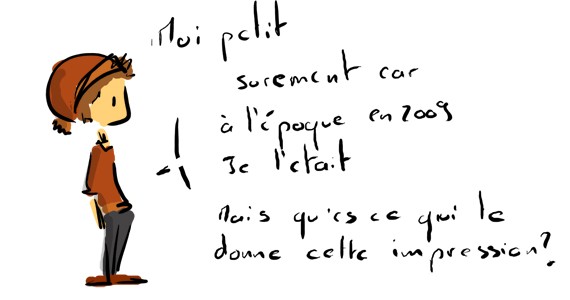 Moi petit
surement car
à l'époque en 2009
Je l'était
Mais qu'es ce qui te
donne cette impression?